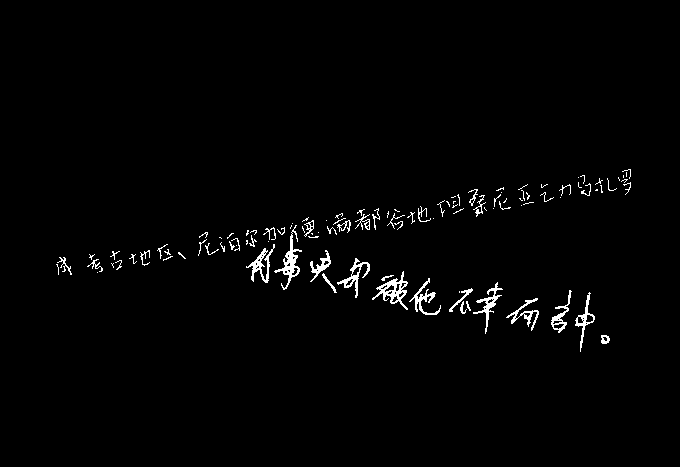 成考古地区、尼泊尔加德满都谷地坦桑尼亚乞力马扎罗
的事实却被他不幸而言中。